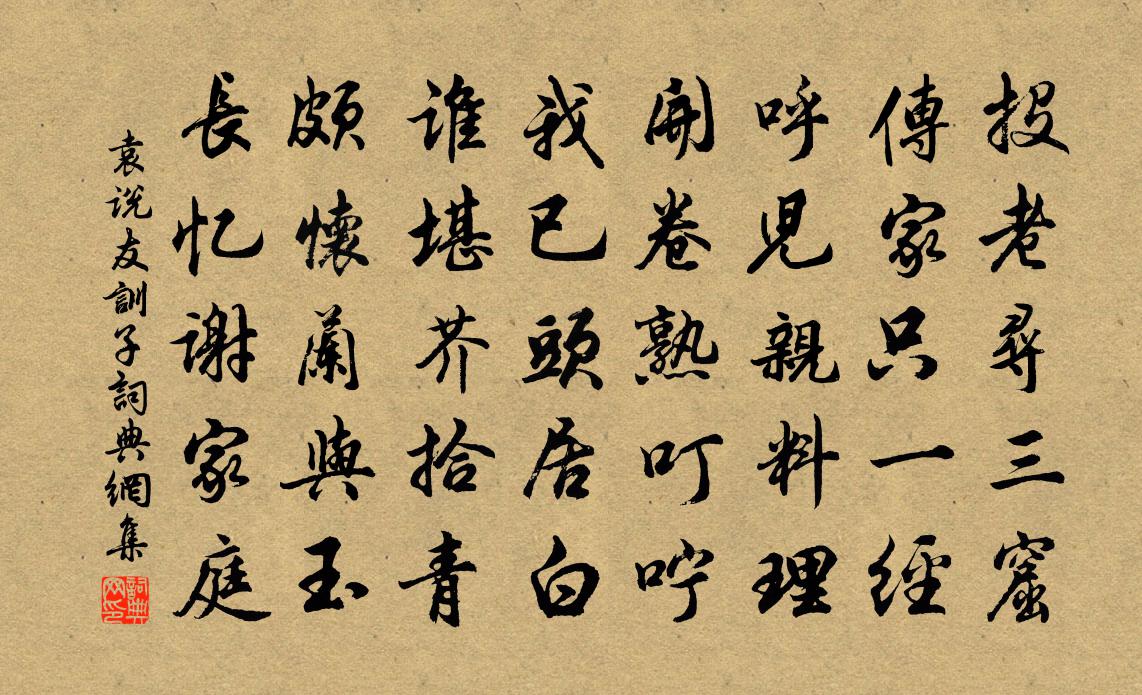 投老尋三窟
傳家只一經
呼兒親料理
開卷熟叮嚀
我已頭居白
誰堪芥拾青
頗懷蘭與玉
長忆謝家庭
袁说友訓子詞典網集
詞典网印